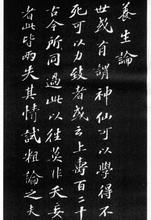 養生論
世或有謂神仙可以學得不
死可以力致者或云上壽百二十
古今所同過此以往莫非夭妄
者此皆兩失其情試粗論之夫